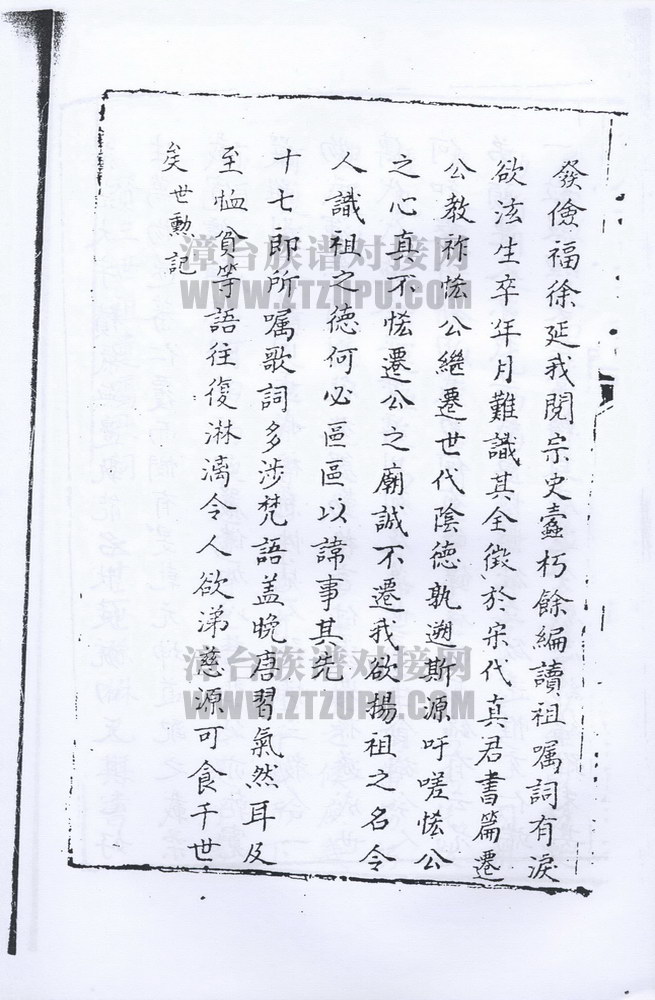 發儉福徐延我閱宗史蠹朽餘編讀祖嘱詞有淚
欲泫生卒年月難識其全徵於宋代真君書篇遷
公教祚恡公繼遷世代陰德孰遡斯源吁嗟恡公
之心真不恡遷公之廟誠不遷我欲揚祖之名令
人識祖之德何必區區以諱事其先
十七即所嘱歌詞多涉梵語盖晚唐習氣然耳及
至恤貧等語往復淋漓令人欲涕慈源可食千世
矣世勲記
漳台族谱对接网
WWW.ZTZUPU.COM
漳台族谱对接网
WWW.ZTZUPU.COM